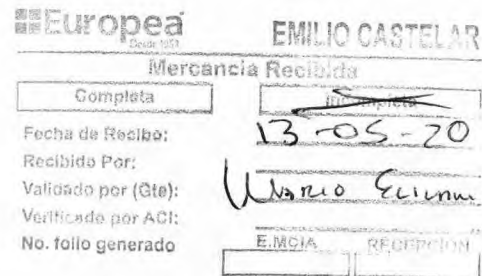 Europea EMILIO CASTELAR
Desde 1953
Mercancia Recibida
Completa Incompleta
Fecha de Recibo: 13-05-20
Recibido Por:
Validado por (Gte):
Verificado por ACI:
No. folio generado E.MCIA RECEPCION